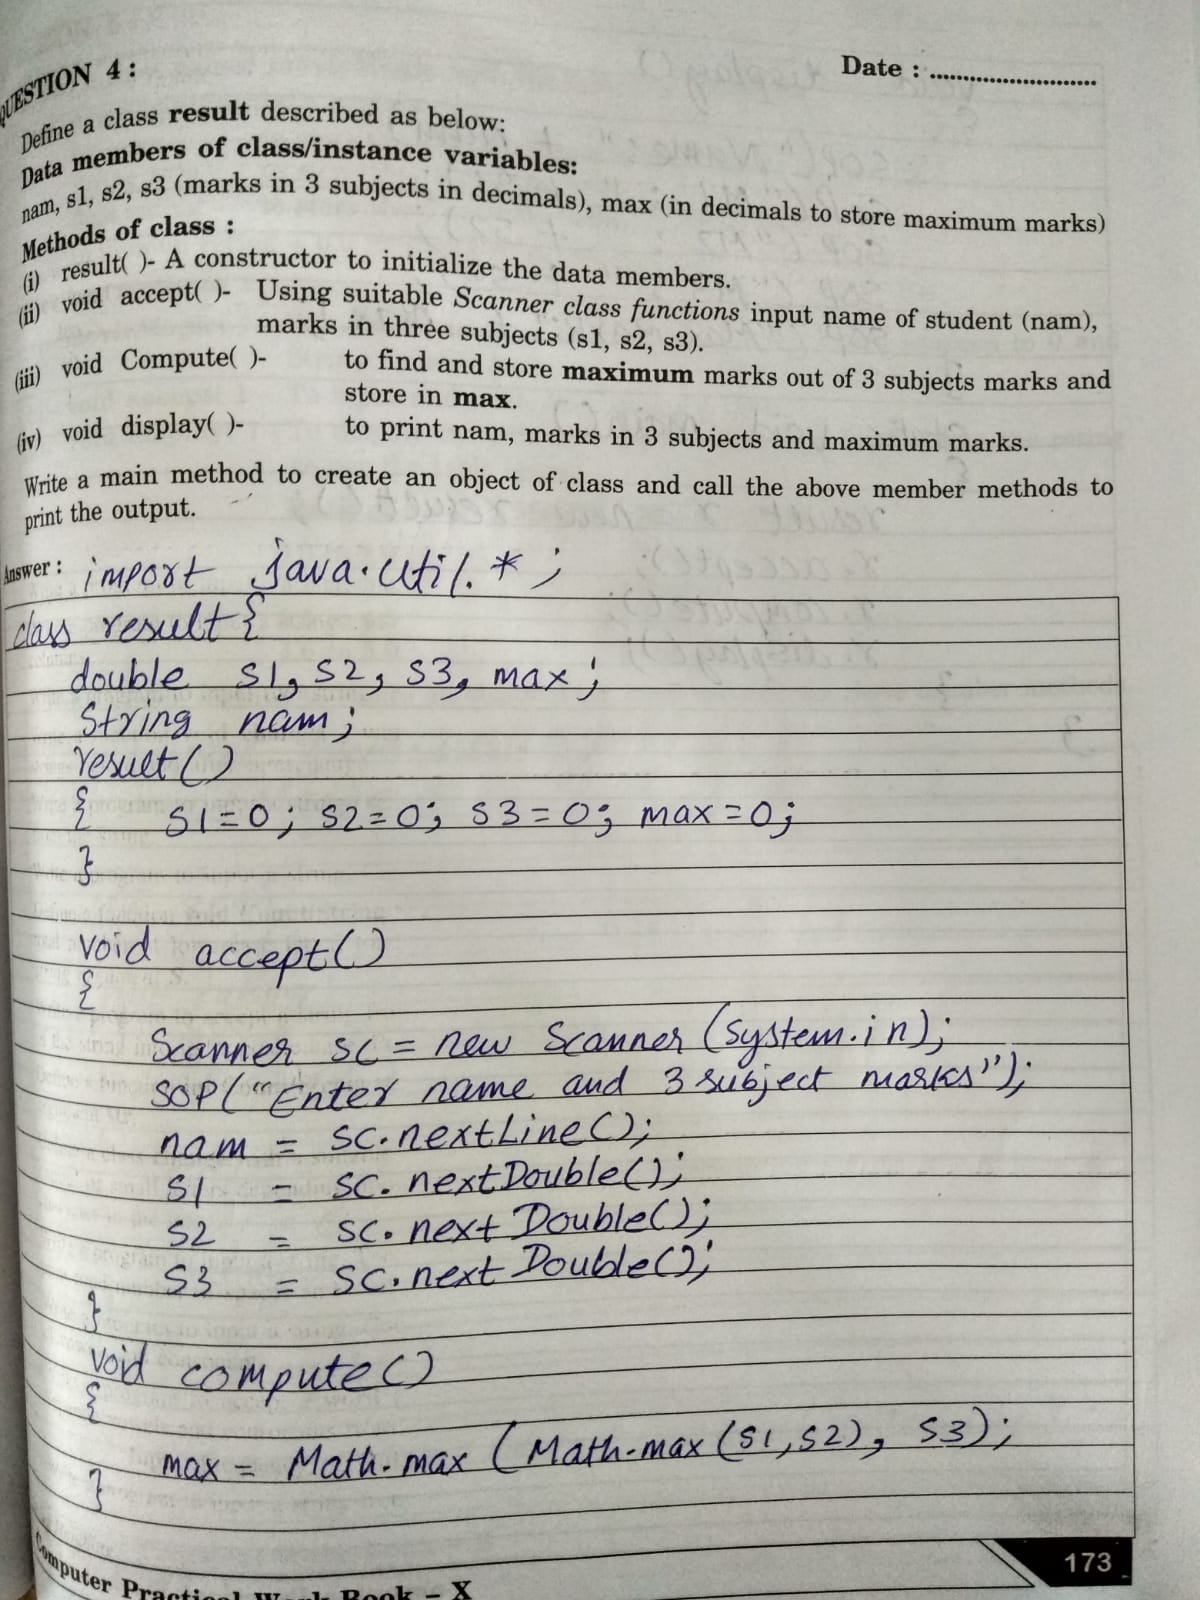 QUESTION 4 :
Date : ............................
Define a class result described as below:
Data members of class/instance variables:
nam, s1, s2, s3 (marks in 3 subjects in decimals), max (in decimals to store maximum marks)
Methods of class :
(i) result( )- A constructor to initialize the data members.
(ii) void accept( )- Using suitable Scanner class functions input name of student (nam),
marks in three subjects (s1, s2, s3).
(iii) void Compute( )- to find and store maximum marks out of 3 subjects marks and
store in max.
(iv) void display( )- to print nam, marks in 3 subjects and maximum marks.
Write a main method to create an object of class and call the above member methods to
print the output.
Answer : import java.util.*;
class result{
double s1, s2, s3, max;
String nam;
result()
{ s1=0; s2=0; s3=0; max=0;
}
void accept()
{
Scanner sc = new Scanner (System.in);
SOP("Enter name and 3 subject marks");
nam = sc.nextLine();
s1 = sc.nextDouble();
s2 = sc.nextDouble();
s3 = sc.nextDouble();
}
void compute()
{
max = Math.max (Math.max(s1,s2), s3);
}
Computer Practical Work Book – X
173